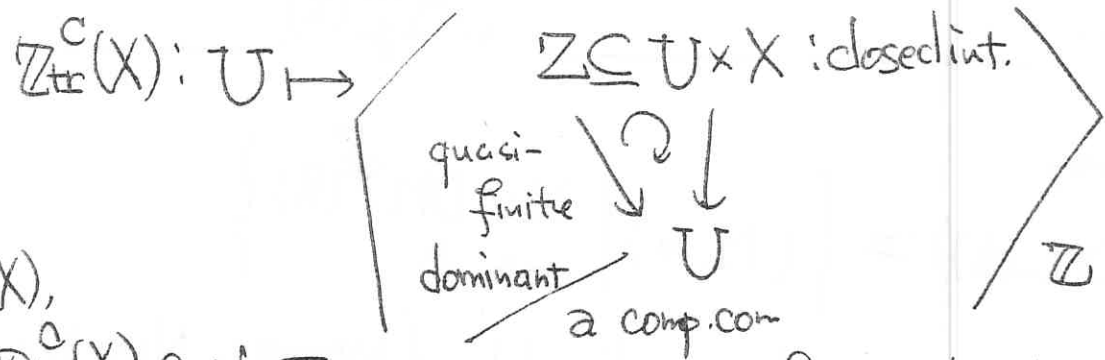 ℤ_tr^c(X) : U ↦ ⟨ Z ⊆ U × X : closed int.
quasi-
finite
dominant
U ⟩ ℤ
a comp. com
X),